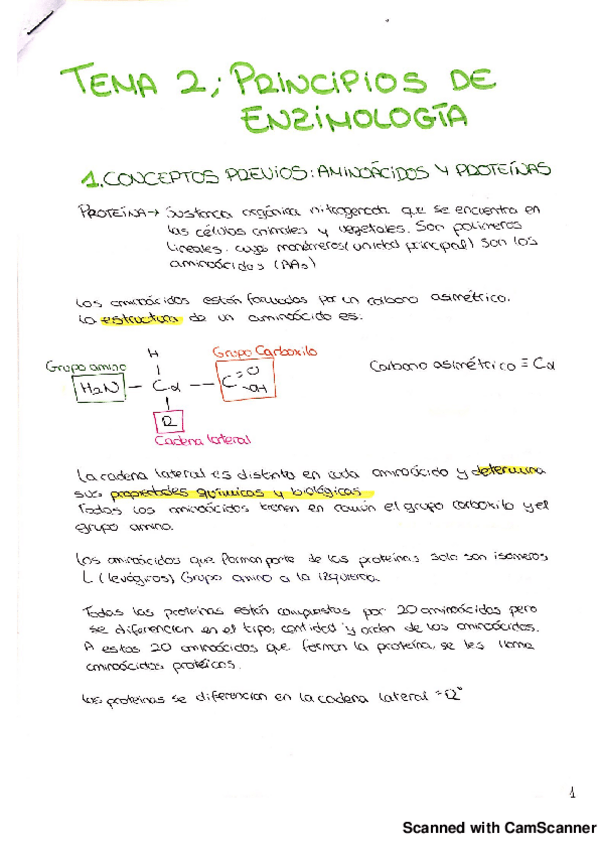 TEMA 2; PRINCIPIOS DE
ENZIMOLOGÍA
1. CONCEPTOS PREVIOS: AMINOÁCIDOS Y PROTEÍNAS
PROTEÍNA → Sustancia orgánica nitrogenada que se encuentra en
las células animales y vegetales. Son polímeros
lineales. cuyos monómeros (unidad principal) son los
aminoácidos (AAs)
Los aminoácidos están formados por un carbono asimétrico.
La estructura de un aminoácido es:
Grupo amino
H
Grupo Carboxilo
H2N — Cα — C =O -OH
Carbono asimétrico ≡ Cα
R
Cadena lateral
La cadena lateral es distinta en cada aminoácido y determina
sus propiedades químicas y biológicas.
Todos los aminoácidos tienen en común el grupo carboxilo y el
grupo amino.
Los aminoácidos que forman parte de las proteínas solo son isómeros
L (levógiros) Grupo amino a la izquierda
Todas las proteínas están compuestas por 20 aminoácidos pero
se diferencian en el tipo, cantidad y orden de los aminoácidos.
A estos 20 aminoácidos que forman la proteína, se les llama
aminoácidos protéicos.
Las proteínas se diferencian en la cadena lateral "R"
1
Scanned with CamScanner